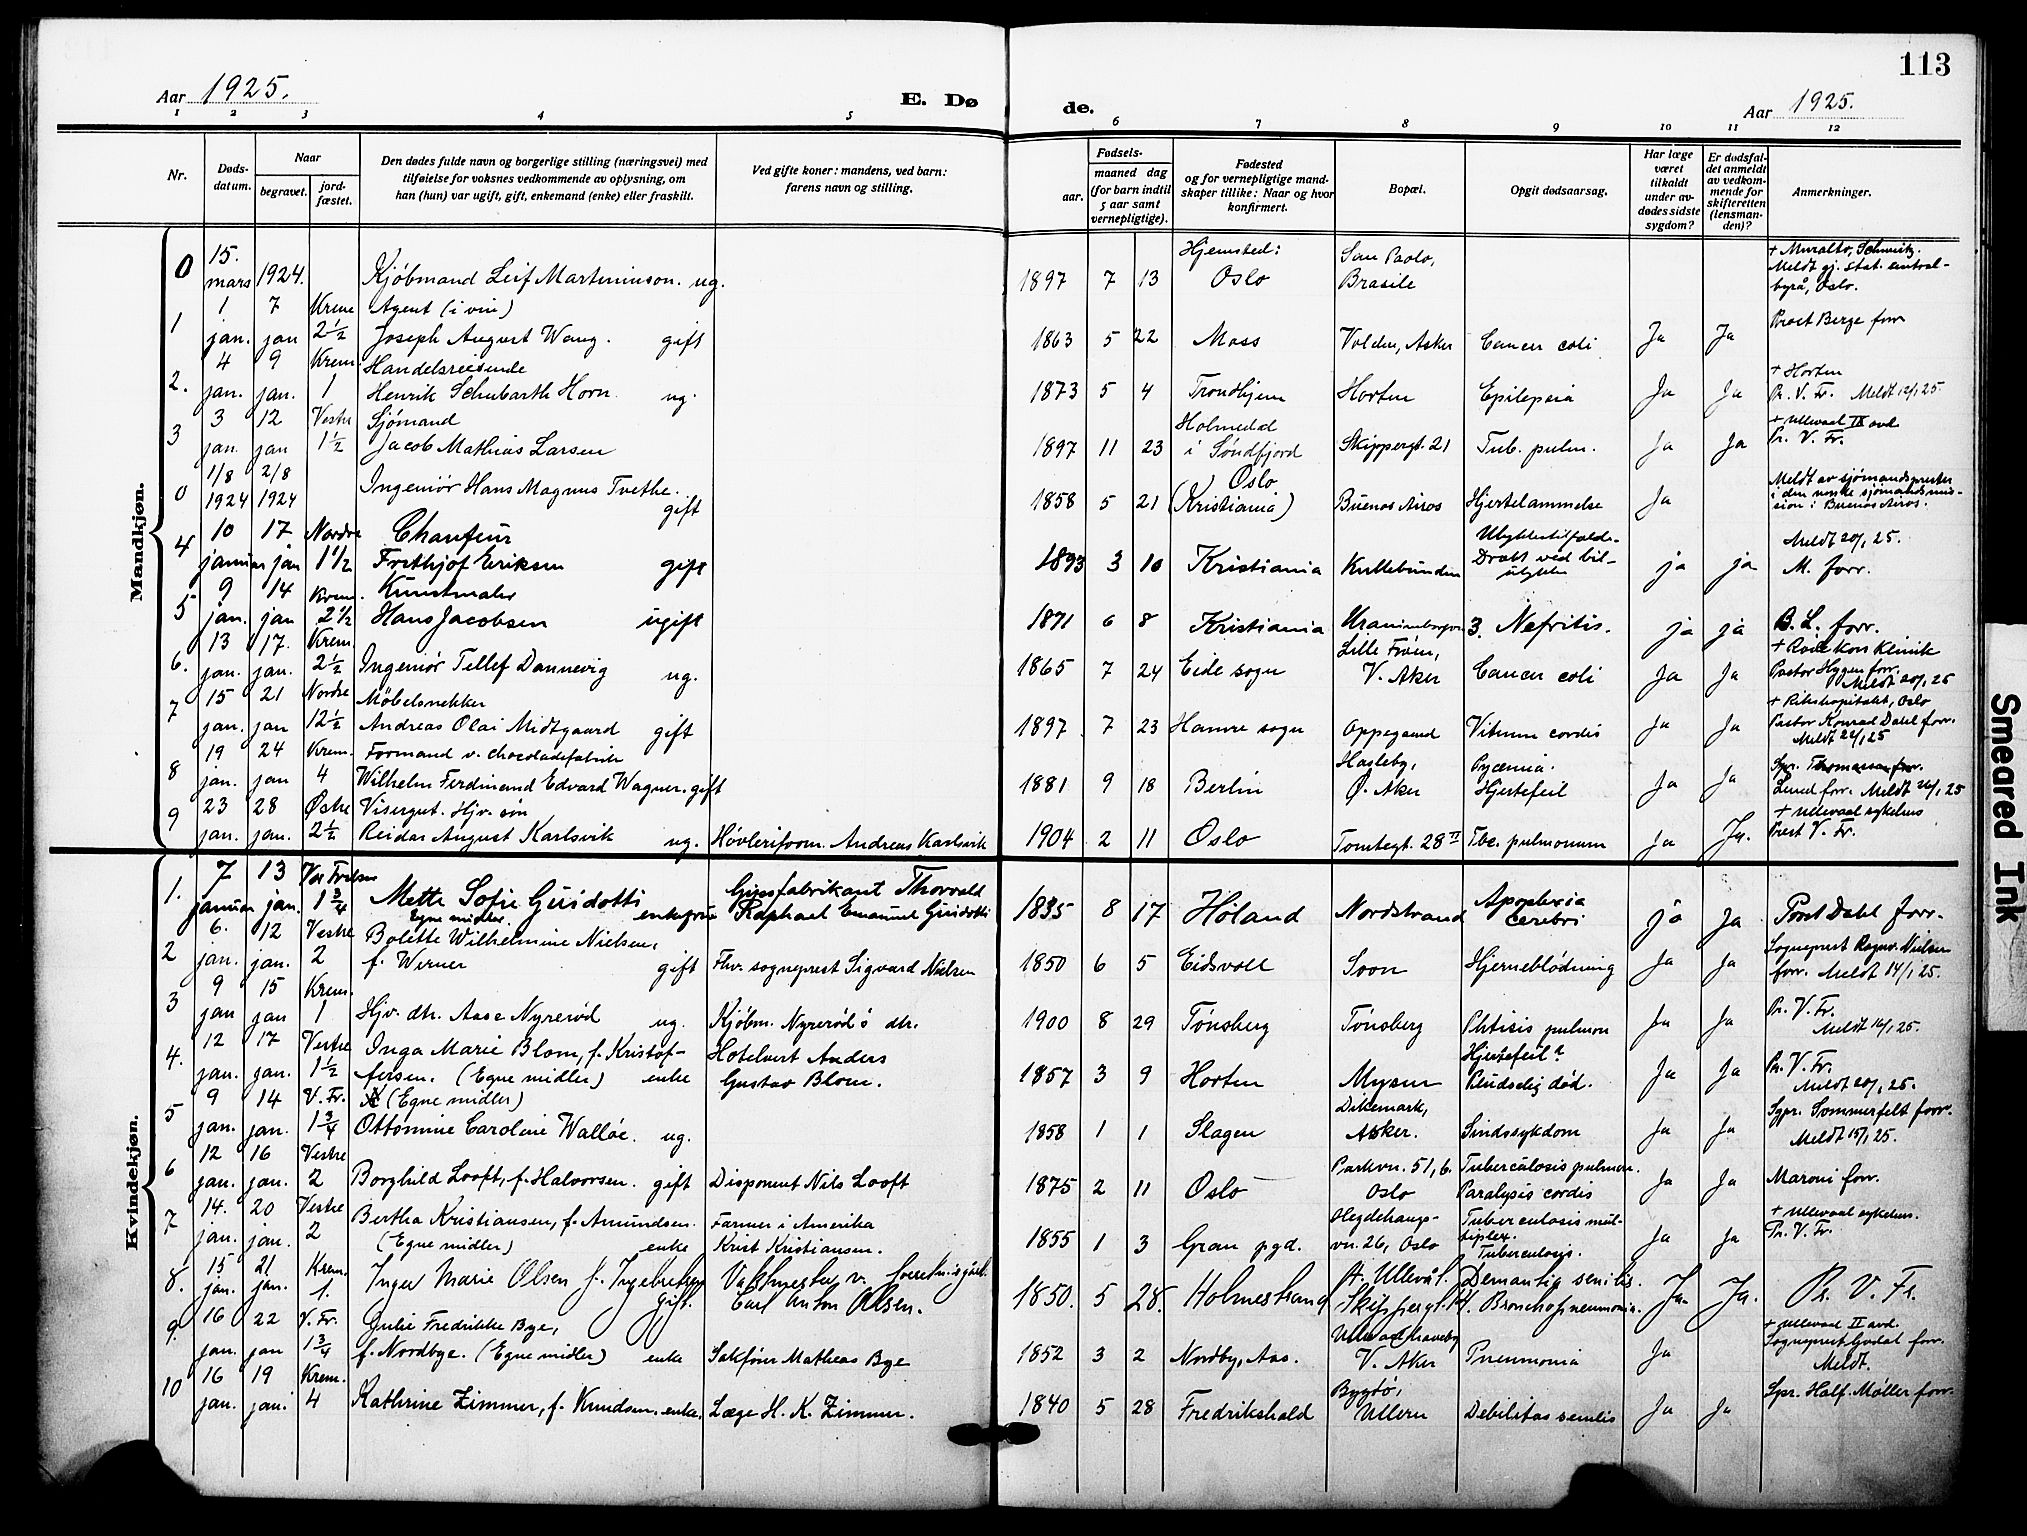 113
Aar 1925.
E. Dø
de.
Aar 1925.
1 2 3 4 5 6 7 8 9 10 11 12
Nr.
Døds-
datum.
Naar
begravet.
jord-
fæstet.
Den dødes fulde navn og borgerlige stilling (næringsvei) med
tilføielse for voksnes vedkommende av oplysning, om
han (hun) var ugift, gift, enkemand (enke) eller fraskilt.
Ved gifte koner: mandens, ved barn:
farens navn og stilling.
Fødsels-
aar.
maaned dag
(for barn indtil
5 aar samt
vernepligtige).
Fødested
og for vernepligtige mand-
skaper tillike: Naar og hvor
konfirmert.
Bopæl.
Opgit dødsaarsag.
Har læge
været
tilkaldt
under av-
dødes sidste
sygdom?
Er dødsfal-
det anmeldt
av vedkom-
mende for
skifteretten
(lensman-
den)?
Anmerkninger.
Mandkjøn.
0 15. mars 1924. Kjøbmand Leif Marteninson. ug. 1897 7 13 Hjemsted: Oslo San Paolo, Brasile + Muralto, Schweitz. Meldt gj. stat. central-byrå, Oslo.
1 1 jan. 7 jan Krem 2½ Agent (i vin) Joseph August Wang. gift 1863 5 22 Moss Volden, Asker Cancer coli Ja Ja Prost Berge forr
2. 4 jan. 9 jan. Krem. 1 Handelsreisende Henrik Schubarth Horn. ug. 1873 5 4 Trondhjem Horten Epilepsia Ja Ja + Horten Pr. V. Fr. Meldt 12/1 25.
3 3 jan. 12 jan Vestre 1½ Sjømand Jacob Mathias Larsen 1897 11 23 Holmedal i Søndfjord Skippergt. 21 Tub. pulm. Ja Ja + Ullevaal IX avd. Pr. V. Fr.
0 1/8 1924 2/8 1924 Ingeniør Hans Magnus Tvethe. gift 1858 5 21 Oslo (Kristiania) Buenos Aires Hjertelammelse Ja Meldt av sjømandsprester i den norske sjømandsmis-sion i Buenos Aires.
4 10 januar 17 jan Nordre 1½ Chaufeur Frethjof Eriksen gift 1893 3 10 Kristiania Kullebunden Ulykkestilfælde. Dræbt ved bil-ulykke ja ja Meldt 20/1 25. M. forr.
5 9 jan. 14 jan Krem. 2½ Kunstmaler Hans Jacobsen ugift 1871 6 8 Kristiania 3. Nefritis. ja ja B. L. forr.
6. 13 jan. 17. jan. Krem. 2½ Ingeniør Tellef Dannevig ug. 1865 7 24 Eide sogn Lille Frøen, V. Aker Cancer coli Ja Ja + Røde Kors Klinik Pastor Hygen forr. Meldt 20/1 25
7 15 jan. 21 jan Nordre 12½ Møbelsnekker Andreas Olai Midtgaard gift 1897. 7 23 Hamre sogn Oppegaard Vitium cordis Ja Ja + Rikshospitalet, Oslo Pastor Konrad Dahl forr. Meldt 22/1 25
8 19 jan. 24 jan Krem. 4 Formand v. chocoladefabrik Wilhelm Ferdinand Edvard Wagner. gift 1881 9 18 Berlin Hasleby, Ø. Aker Pycemia. Hjertefeil Ja Ja Spr. Thomassen forr. Lund forr. Meldt 26/1 25
9 23 jan. 28 jan. Østre 2½ Visergut. Hjv. søn Reidar August Karlsvik ug. Høvleriform. Andreas Karlsvik 1904 2 11 Oslo Tomtegt. 28 II Tbc. pulmonum ja Ja. + Ullevaal sykehus Prest V. Fr.
Kvindekjøn.
1. 7 januar 13 jan. Vor Frelser 1¾ Mette Sofie Guidotti enkefrue Egne midler. Gipsfabrikant Thorvald Raphael Emanuel Guidotti 1835 8 17 Høland Nordstrand Apoplexia cerebri ja Ja Prost Dahl forr.
2 6. jan. 12 jan. Vestre 2 Bolette Wilhelmine Nielsen, f. Werner gift Fhv. sogneprest Sigvard Nielsen 1850 6 5 Eidsvoll Soon Hjerneblødning Ja Ja Sogneprest Ragnv. Nielsen forr. Meldt 14/1 25.
3 9 jan 15 jan Krem. 1 Hjv. dtr. Aase Nyrerød ug. Kjøbm. Nyrerød's dtr. 1900 8 29 Tønsberg Tønsberg Phtisis pulmon Ja Ja Pr. V. Fr. Meldt 16/1 25.
4. 12 jan. 17 jan. Vestre 1½ Inga Marie Blom, f. Kristof-fersen. (Egne midler) enke Hotelvert Anders Gustav Blom. 1857 3 9 Horten Mysen Hjertefeil? Pludselig død. Ja Ja Pr. V. Fr. Meldt 20/1 25.
5 9 jan. 14 jan. V. Fr. 1¾ (Egne midler) Ottomine Caroline Walløe. ug. 1858 1 1 Slagen Dikemark, Asker. Sindssykdom Ja Ja Sgpr. Sommerfelt forr. Meldt 15/1 25.
6 12 jan. 16 jan. Vestre 2 Borghild Looft, f. Halvorsen. gift Disponent Nils Looft 1875 2 11 Oslo Parkvn. 51, 6. Oslo Tuberculosis pulmon. Paralysis cordis Ja Ja Maroni forr.
7 14. jan. 20 jan. Vestre 2 Bertha Kristiansen, f. Amundsen. (Egne midler) enke Farmer i Amerika Krist Kristiansen. 1855 1 3 Gran pgd. Hegdehaugs-vn. 26, Oslo Tuberculosis mul-tiplex. Tuberculosis. Ja Ja + Ullevaal sykehus. Pr. V. Fr.
8. 15 jan. 21 jan. Krem. 1. Inger Marie Olsen f. Ingebretsen gift. Vaktmester v. Carl Anton Olsen. 1850. 5 28. Holmestrand A. Ullevål. Skippergt. 14. Demantia senilis. Bronchopneumonia. Ja. Ja. Pr. V. Fr.
9. 16 jan. 22 jan V. Fr. 1¾ Julie Fredrikke Bye, f. Nordbye. (Egne midler) enke Sakfører Mathias Bye 1852 3 2 Nordby, Aas. Ullevaal haveby V. Aker Pneumonia Ja + Ullevaal II avd. Sogneprest Gjvdal forr. Meldt.
10 16 jan. 19 jan. Krem. 4 Kathrine Zimmer, f. Knudsen. enke. Læge H. K. Zimmer. 1840 5 28 Fredrikshald Bygdø, Ullern Debilitas senilis Ja Ja Spr. Half. Møller forr.
Smeared Ink